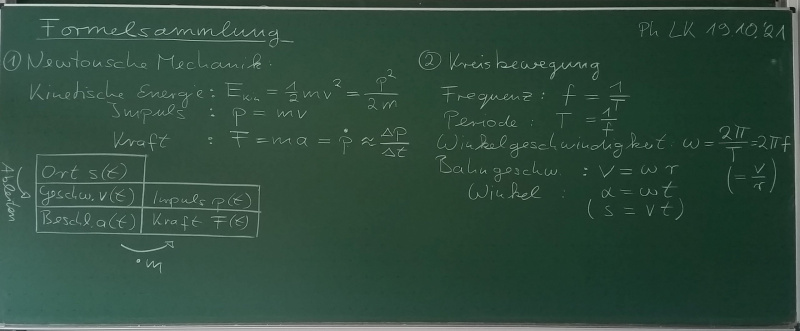 Formelsammlung
Ph LK 19.10.'21
① Newtonsche Mechanik:
Kinetische Energie: E_kin = 1/2 mv² = p²/2m
Impuls : p = mv
Kraft : F = ma = ṗ ≈ Δp/Δt
Ableiten
Ort s(t)
Geschw. v(t) Impuls p(t)
Beschl. a(t) Kraft F(t)
·m
② Kreisbewegung
Frequenz: f = 1/T
Periode: T = 1/f
Winkelgeschwindigkeit: ω = 2π/T = 2πf
Bahngeschw. : v = ω r (= v/r)
Winkel : α = ωt
(s = vt)